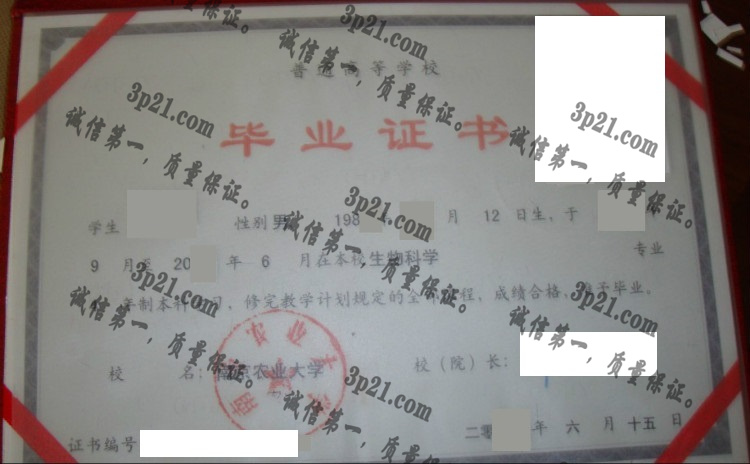 普通高等学校
毕业证书
学生 性别 男 198 月 12 日生，于
9 月至 20 年 6 月在本校 生物科学 专业
年制本科 学习，修完教学计划规定的全 课程，成绩合格，准予毕业。
校 名： 农业大学 校（院）长：
证书编号 二零 年 六 月 十五 日
3p21.com
诚信第一，质量保证。
3p21.com
诚信第一，质量保证。
3p21.com
诚信第一，质量保证。
3p21.com
诚信第一，质量保证。
3p21.com
诚信第一，质量保证。
3p21.com
诚信第一，质量保证。
3p21.com
诚信第一，质量保证。
质量保证。